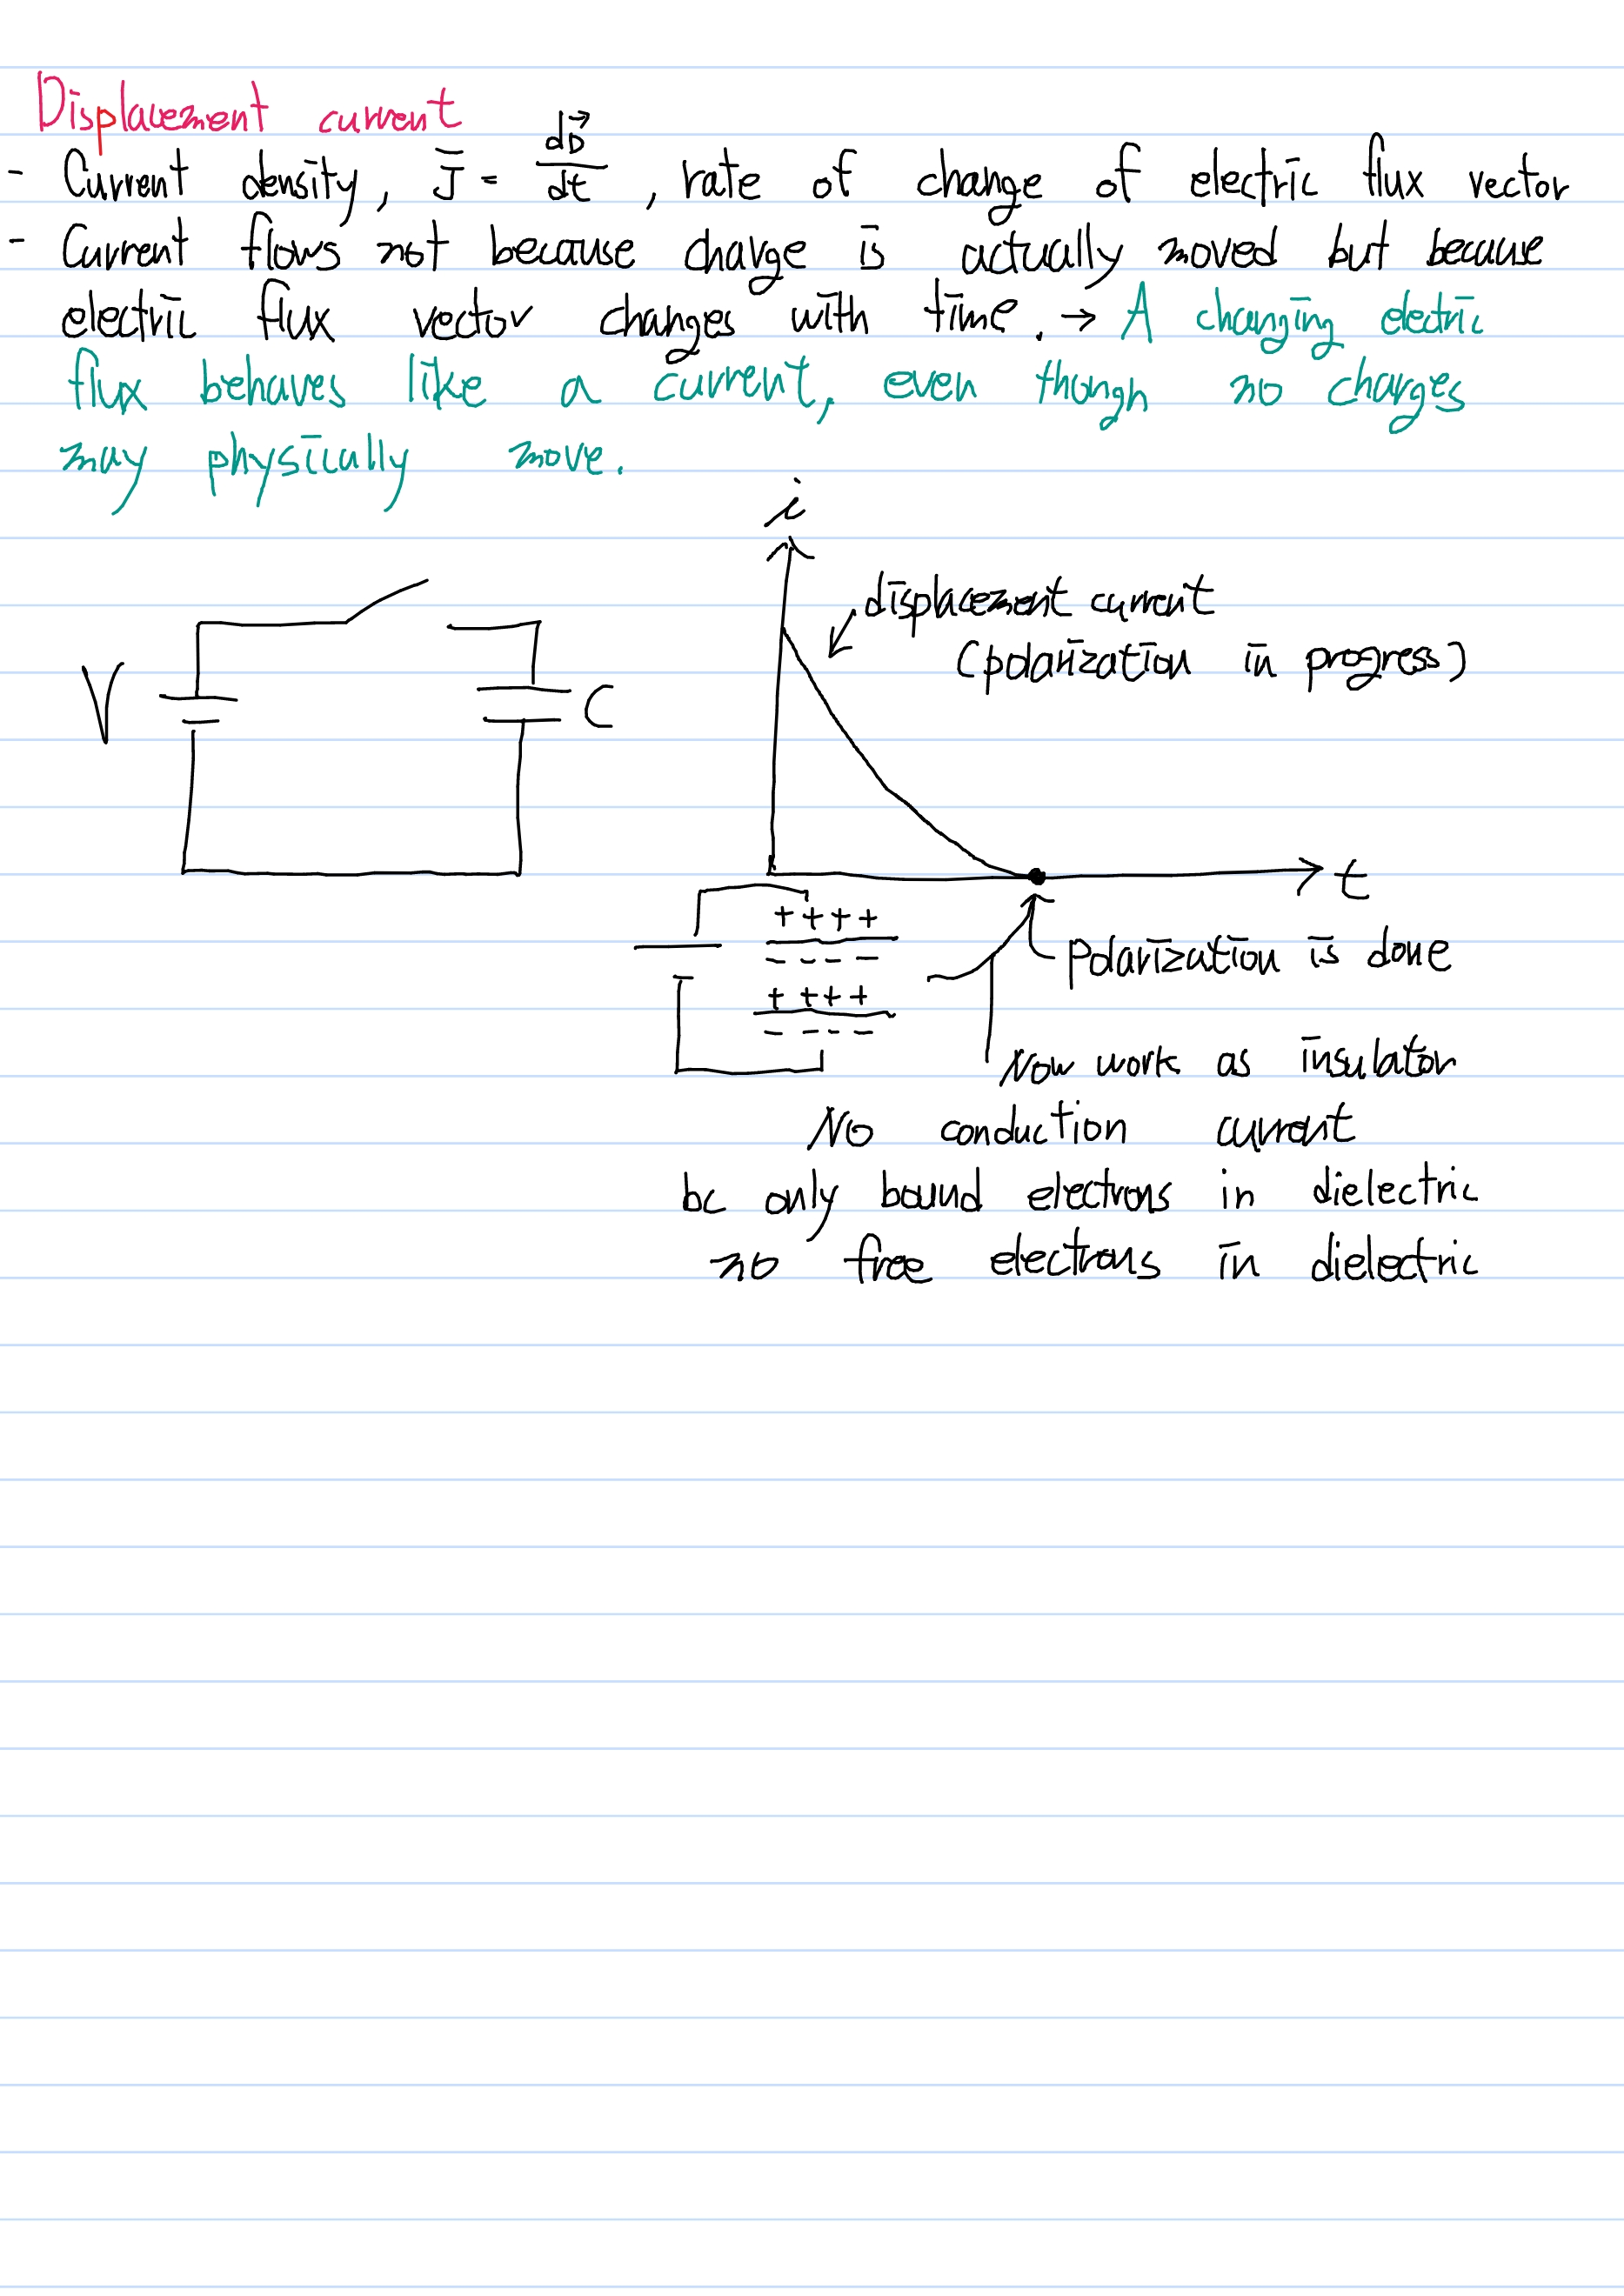 Displacement current
- Current density, J̅ = dD⃗/dt, rate of change of electric flux vector
- Current flows not because charge is actually moved but because
electric flux vector changes with time. → A changing electric
flux behaves like a current, even though no charges
may physically move.
i
displacement current
(polarization in progress)
V
C
t
++++
----
polarization is done
++++
----
Now work as insulator
No conduction current
bc only bound electrons in dielectric
no free electrons in dielectric